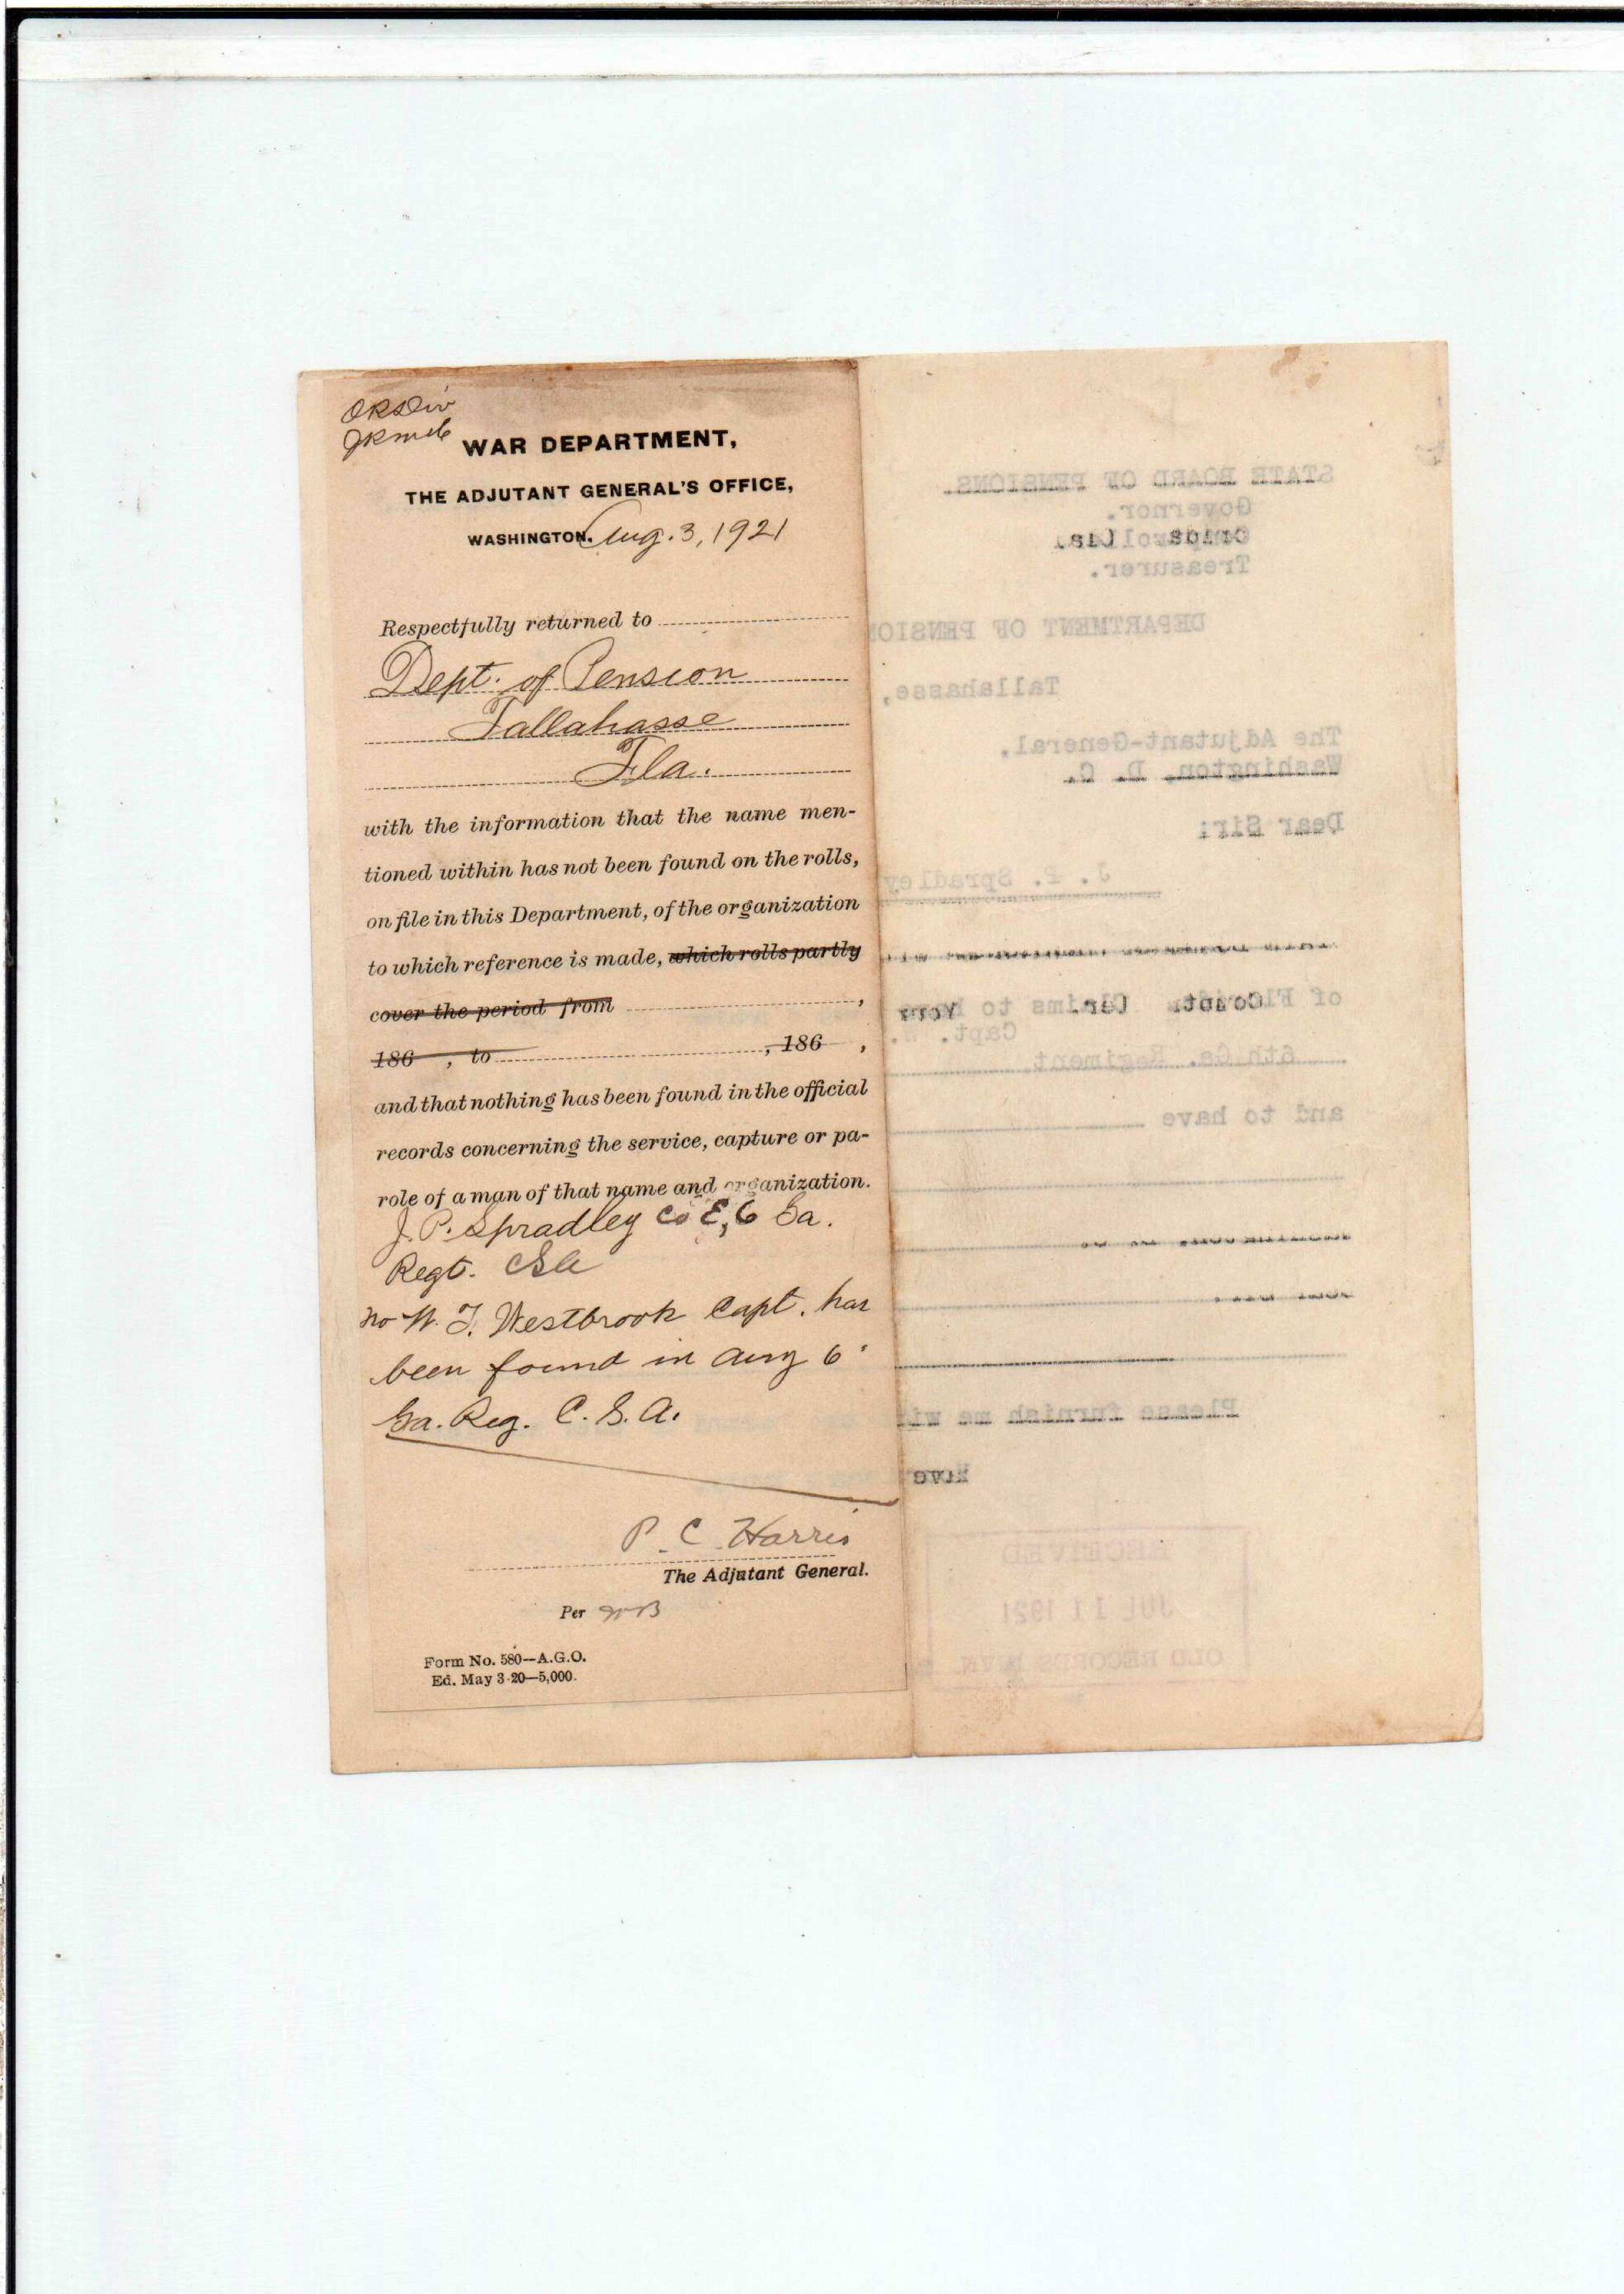 ORDiv
WAR DEPARTMENT,
THE ADJUTANT GENERAL'S OFFICE,
WASHINGTON. Aug. 3, 1921
Respectfully returned to
Dept. of Pension
Tallahasse
Fla.
with the information that the name men-
tioned within has not been found on the rolls,
on file in this Department, of the organization
to which reference is made, which rolls partly
cover the period from ,
186 , to , 186 ,
and that nothing has been found in the official
records concerning the service, capture or pa-
role of a man of that name and organization.
J. P. Spradley Co E, 6 Ga.
Regt. CSA
no W. T. Westbrook Capt. has
been found in any 6"
Ga. Reg. C. S. A.
P. C. Harris
The Adjutant General.
Per
Form No. 580—A.G.O.
Ed. May 3-20—5,000.
STATE BOARD OF PENSIONS.
Governor.
Treasurer.
DEPARTMENT OF PENSION
Tallahasse,
The Adjutant-General.
Washington, D. C.
Dear Sir:
J. P. Spradley
of Florida Claims to have
Capt.
6th Ga. Regiment
and to have
Please furnish me
RECEIVED
JUL 11 1921
OLD RECORDS